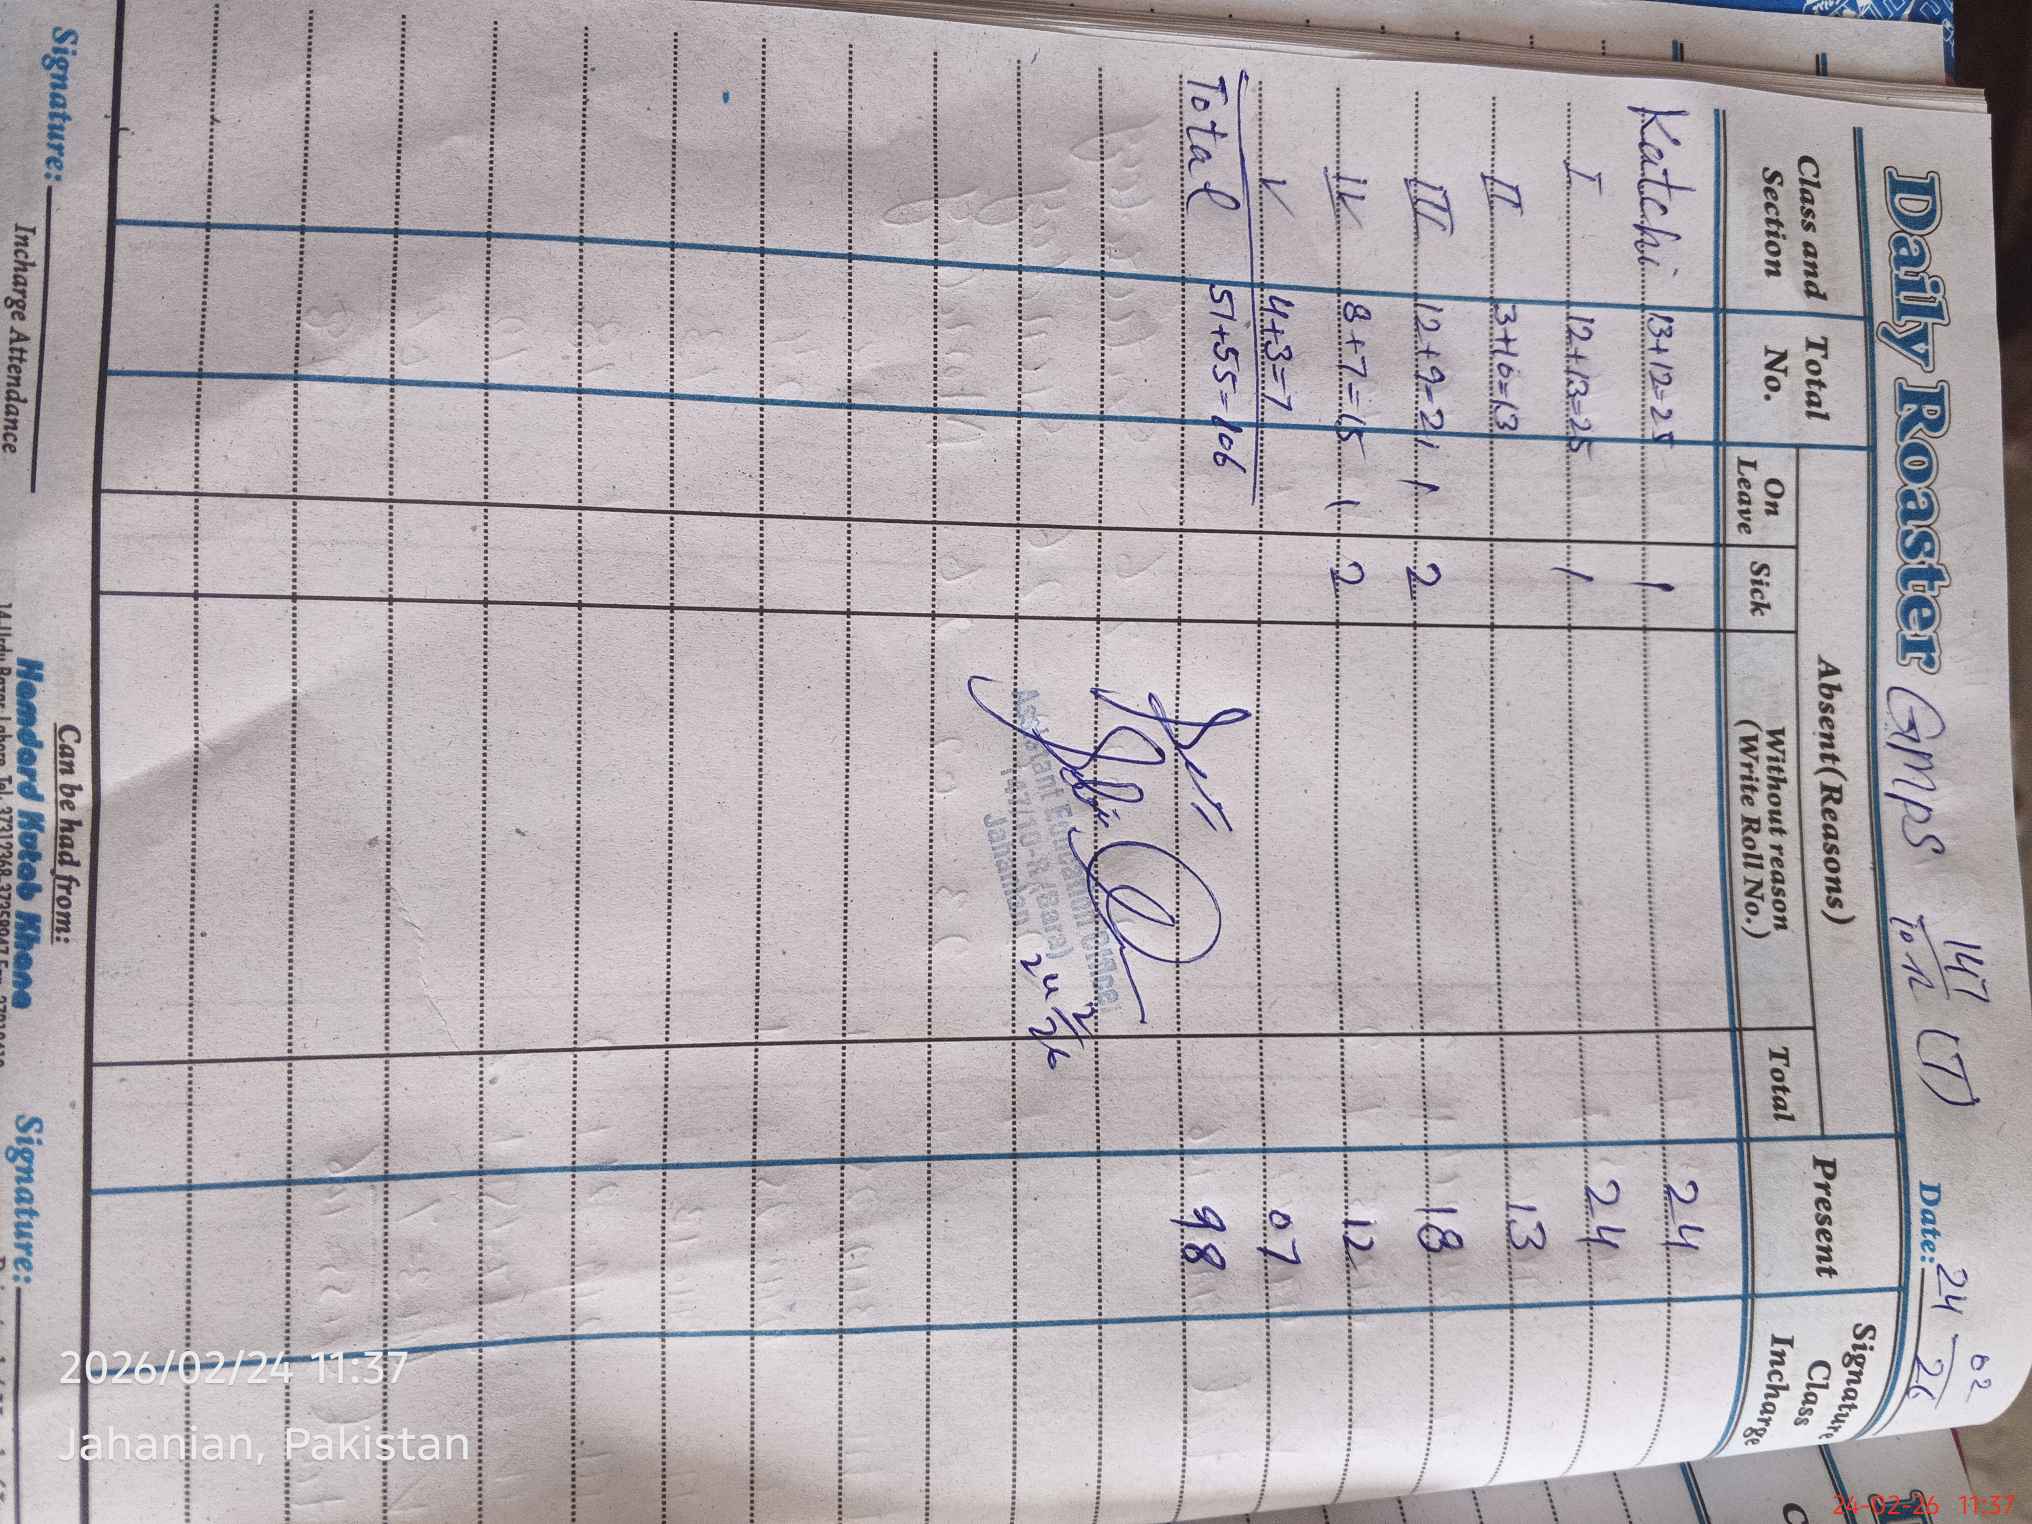 Daily Roaster GMPS 147/10R (T) Date: 24/02/26
Class and Section Total No. Absent (Reasons) Present Signature Class Incharge
On Leave Sick Without reason (Write Roll No.) Total
Katchi 13+12=25 1 24
I 12+13=25 1 24
II 3+10=13 13
III 12+9=21 1 2 18
IV 8+7=15 1 2 12
V 4+3=7 07
Total 51+55=106 98
Assistant Education Officer
147/10-R (Bara)
Jahanian
24/2/26
Signature:
Incharge Attendance
Can be had from:
Hamdard Kutab Khana
Signature:
2026/02/24 11:37
Jahanian, Pakistan
24-02-26 11:37